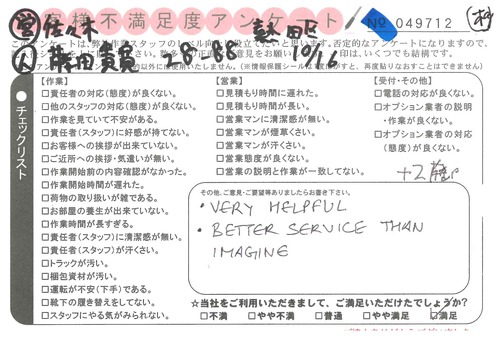 お客様不満足度アンケート
№ 049712
㊞佐々木
28-88
10/16
このアンケートは、弊社作業スタッフのレベル向上に役立てたいと思います。否定的なアンケートになりますので、
印は、いくつでも結構です。
以外には使用いたしません。(※情報保護シールは重ね貼りすると、再度貼りなおすことはできません)
チェックリスト
【作業】
□責任者の対応(態度)が良くない。
□他のスタッフの対応(態度)が良くない。
□作業を見ていて不安がある。
□責任者(スタッフ)に好感が持てない。
□お客様への挨拶が出来ていない。
□ご近所への挨拶・気遣いが無い。
□作業開始前の内容確認がなかった。
□作業開始時間が遅れた。
□荷物の取り扱いが雑である。
□お部屋の養生が出来ていない。
□作業時間が長すぎる。
□責任者(スタッフ)に清潔感が無い。
□責任者(スタッフ)が汗くさい。
□トラックが汚い。
□梱包資材が汚い。
□運転が不安(下手)である。
□靴下の履き替えをしてない。
□スタッフにやる気がみられない。
【営業】
□見積もり時間に遅れた。
□見積もり時間が長い。
□営業マンに清潔感が無い。
□営業マンが煙草くさい。
□営業マンが汗くさい。
□営業態度が良くない。
□営業の説明と作業が一致してない。
【受付・その他】
□電話の対応が良くない。
□オプション業者の説明
・作業が良くない。
□オプション業者の対応
(態度)が良くない。
その他、ご意見・ご要望等ありましたらお書き下さい。
・VERY HELPFUL
・BETTER SERVICE THAN
IMAGINE
☆当社をご利用いただきまして、ご満足いただけたでしょうか?
□不満 □やや不満 □普通 □やや満足 □満足